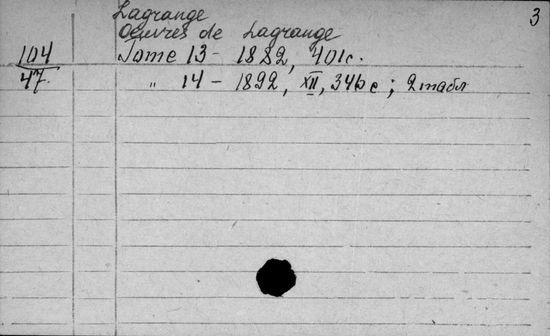 3
Lagrange
Oeuvres de Lagrange
104 Tome 13 - 1882, 401с.
47. " 14 - 1892, XII, 346 с; 2 табл